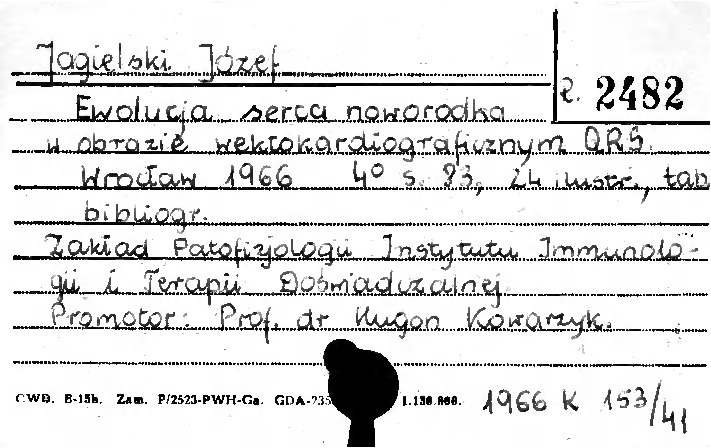 Jagielski Józef
R. 2482
Ewolucja serca noworodka
w obrazie wektokardiograficznym QRS.
Wrocław 1966 4° s. 83, 24 ilustr., tab
bibliogr.
Zakład Patofizjologii Instytutu Immunolo-
gii i Terapii Doświadczalnej
Promotor: Prof. dr Hugon Kowarzyk.
CWD. B-15b. Zam. P/2523-PWH-Ga. GDA-235
1966 K 153/41